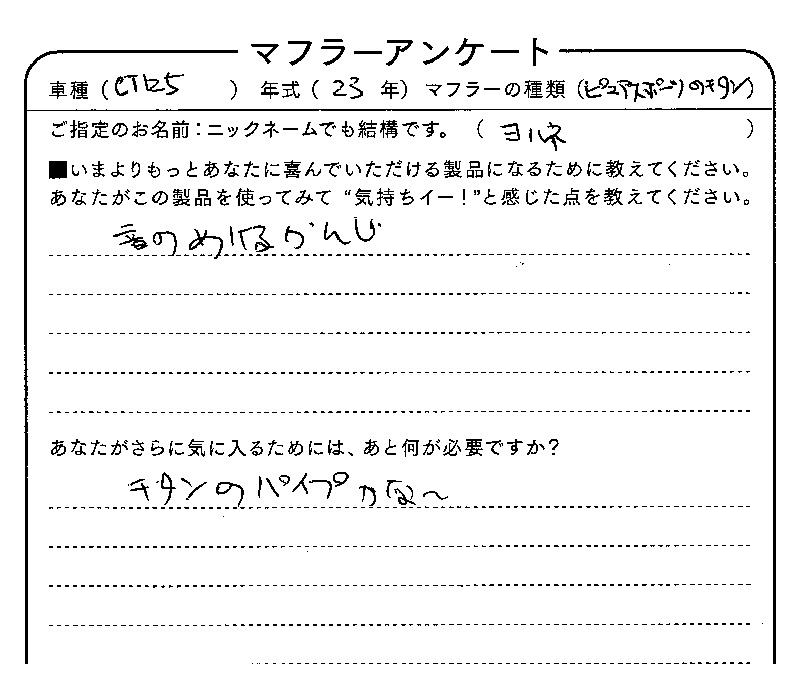 マフラーアンケート
車種 (CT125) 年式 (23年) マフラーの種類 (ピュアスポーツのチタン)
ご指定のお名前：ニックネームでも結構です。 (ヨルネ)
■いまよりもっとあなたに喜んでいただける製品になるために教えてください。
あなたがこの製品を使ってみて “気持ちイー！”と感じた点を教えてください。
音のぬけるかんじ
あなたがさらに気に入るためには、あと何が必要ですか？
チタンのパイプかな〜